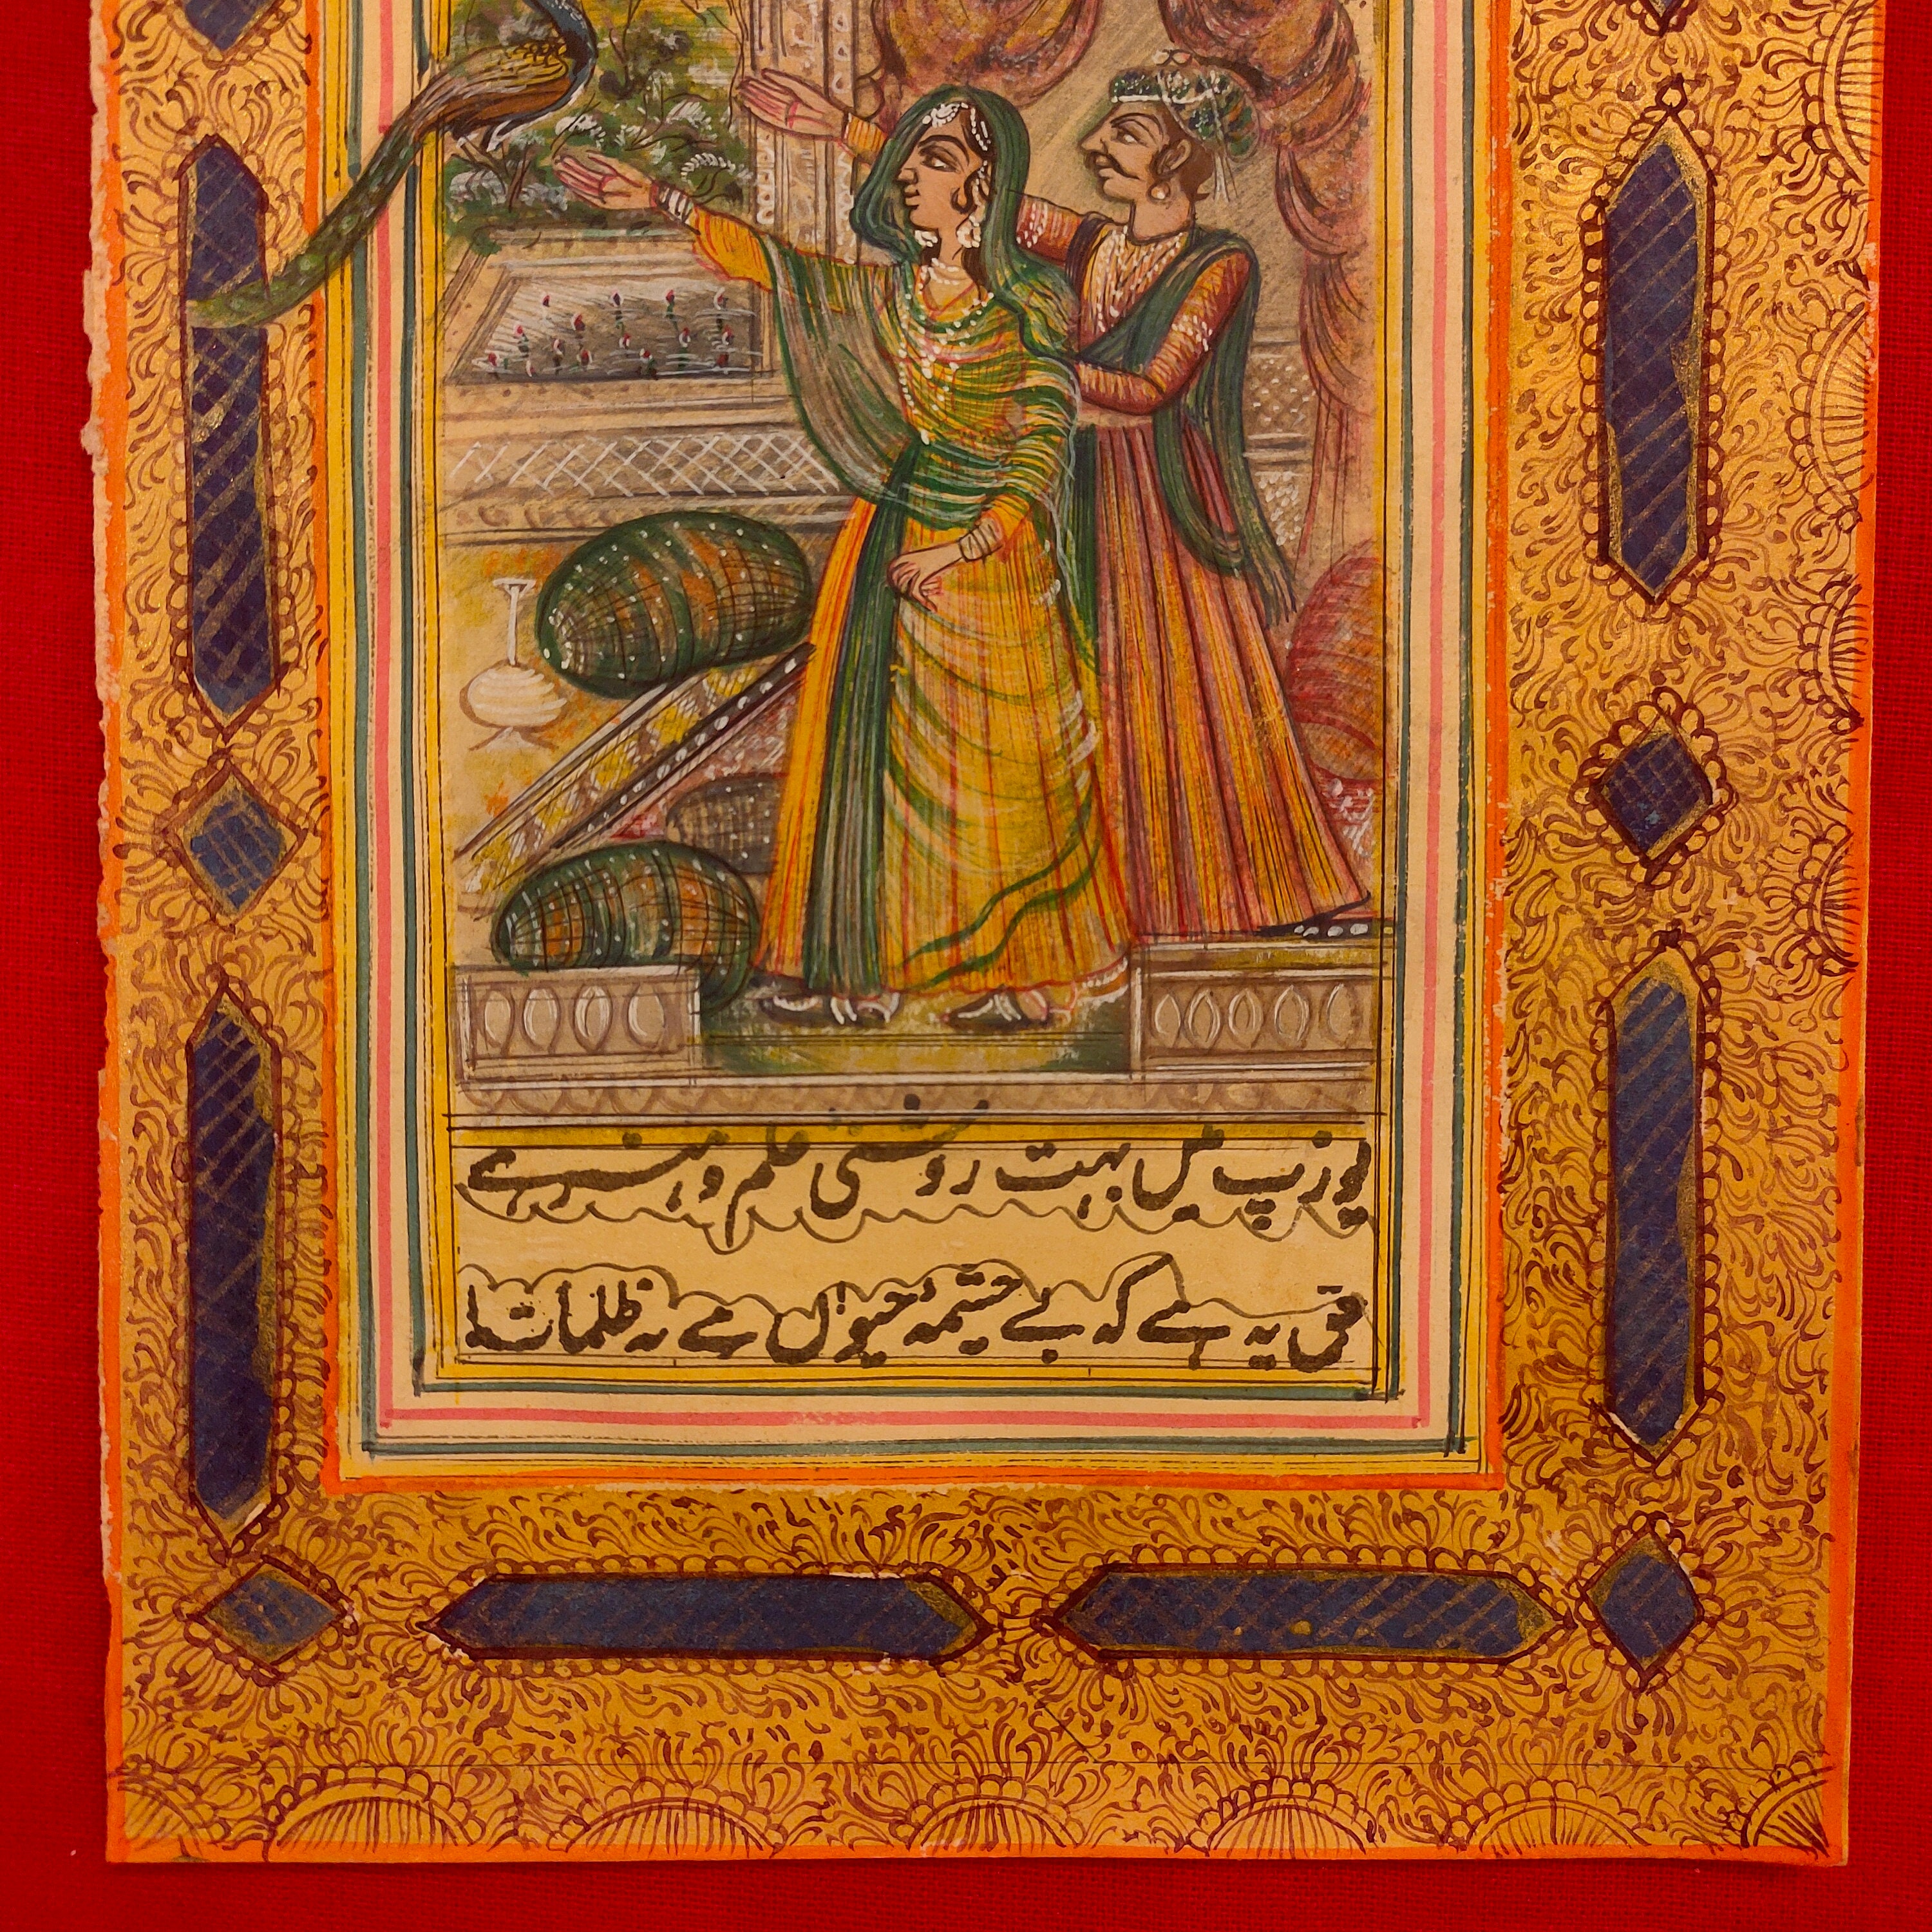 یورپ میں بہت روشنی علم و ہنر ہے
حق یہ ہے کہ بے چشمۂ حیواں ہے یہ ظلمات!